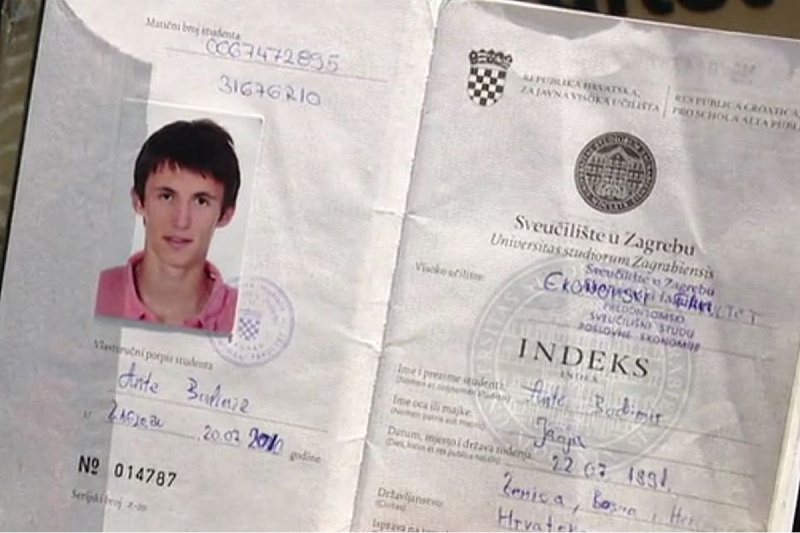 Matični broj studenta
0067472895
31676210
Vlastoručni potpis studenta
Ante Budimir
U Zagrebu 20.07 2010 godine
№ 014787
Serijski broj
REPUBLIKA HRVATSKA,
ZA JAVNA VISOKA UČILIŠTA
RES PUBLICA CROATICA,
PRO SCHOLA ALTA
Sveučilište u Zagrebu
Universitas studiorum Zagrabiensis
Visoko učilište:
EKONOMSKI FAKULTET
Sveučilište u Zagrebu
PREDDIPLOMSKI
SVEUČILIŠNI STUDIJ
POSLOVNE EKONOMIJE
INDEKS
INDEX
Ime i prezime studenta: Ante Budimir
Ime oca ili majke:
Datum, mjesto i država rođenja: 22 07 1991.
Zenica, Bosna i
Državljanstvo:
(Civitas)
Isprava